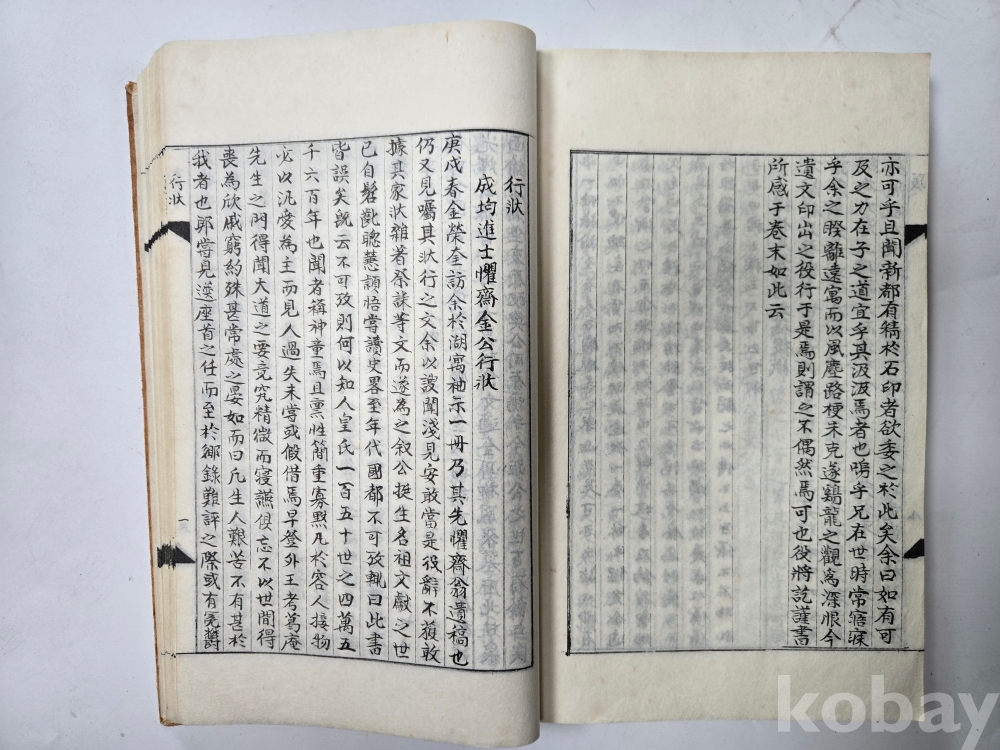 亦可乎且聞新都有精於石印者欲委之於此矣余曰如有可
及之力在子之道宜乎其汲汲焉者也嗚乎兄在世時常寤寐
乎余之暌離遠寓而以風塵路梗未克遂鷄龍之觀爲深恨今
遺文印出之役行于是焉則謂之不偶然焉可也役將訖謹書
所感于卷末如此云
行狀
成均進士懼齋金公行狀
庚戌春金榮奎訪余於湖寓袖示一冊乃其先懼齋翁遺稿也
仍又見囑其狀行之文余以謏聞淺見安敢當是役辭不獲敢
據其家狀雜著祭誄等文而遂爲之叙公挺生名祖文獻之世
已自髫齔聰慧頴悟嘗讀史畧至年代國都不可攷輒曰此書
皆誤矣旣云不可攷則何以知人皇氏一百五十世之四萬五
千六百年也聞者稱神童焉且禀性簡重寡默凡於容人接物
必以汎愛爲主而見人過失未嘗或假借焉早登外王考萬庵
先生之門得聞大道之要竟究精微而寢讌俱忘不以世間得
喪爲欣戚窮約殊甚常處之晏如而曰凡生人艱苦不有甚於
我者也耶嘗見逆座首之任而至於鄕錄難評之際或有寃欝
行狀
kobay